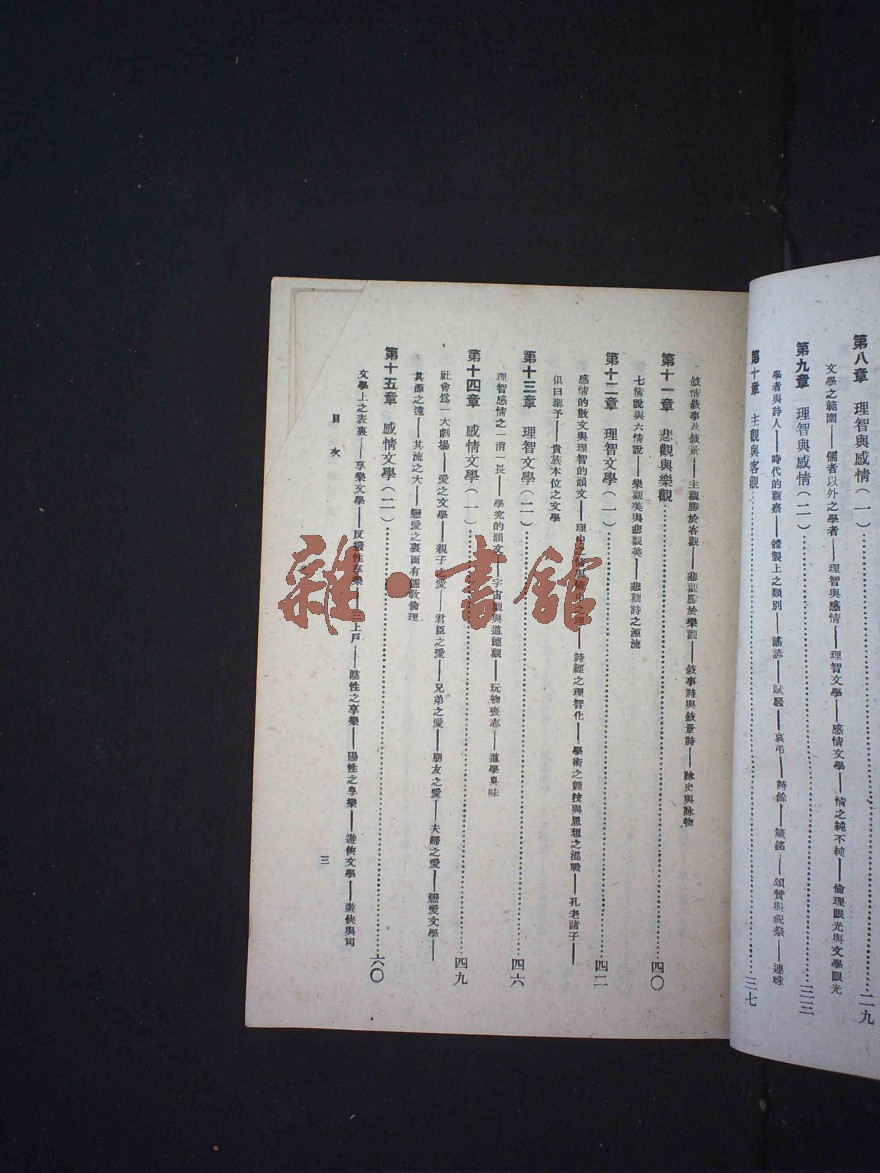 第八章　理智與感情（一）……二九
文學之範圍——儒者以外之學者——理智與感情——理智文學——感情文學——情之純不純——倫理眼光與文學眼光
第九章　理智與感情（二）……三三
學者與詩人——時代的觀察——體製上之類別——謠諺——賦騷——哀弔——詩餘——箴銘——頌贊與祝祭——連珠
第十章　主觀與客觀……三七
敍情敍事及敍景——主觀勝於客觀——悲觀勝於樂觀——敍事詩與敍景詩——詠史與詠物
第十一章　悲觀與樂觀……四〇
七情說與六情說——樂觀美與悲觀美——悲觀詩之源流
第十二章　理智文學（一）……四二
感情的散文與理智的韻文——理中之情——詩經之理智化——學術之競技與思想之混戰——孔老諸子——
俱曰聖予——貴族本位之文學
第十三章　理智文學（二）……四六
理智感情之一消一長——學究的韻文——宇宙觀與道德觀——玩物喪志——道學臭味
第十四章　感情文學（一）……四九
社會爲一大劇場——愛之文學——親子之愛——君臣之愛——兄弟之愛——朋友之愛——夫婦之愛——戀愛文學——
其源之遠——其流之大——戀愛之裏面有儒教倫理
第十五章　感情文學（二）……六〇
文學上之表裏——享樂文學——反撥性享樂——三上戶——陰性之享樂——陽性之享樂——遊俠文學——遊俠與司
目次
三
雜·書館